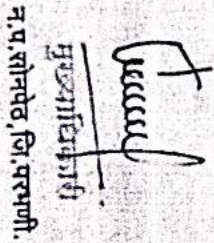 मुख्याधिकारी
न.प.सोनपेठ,जि.परभणी.